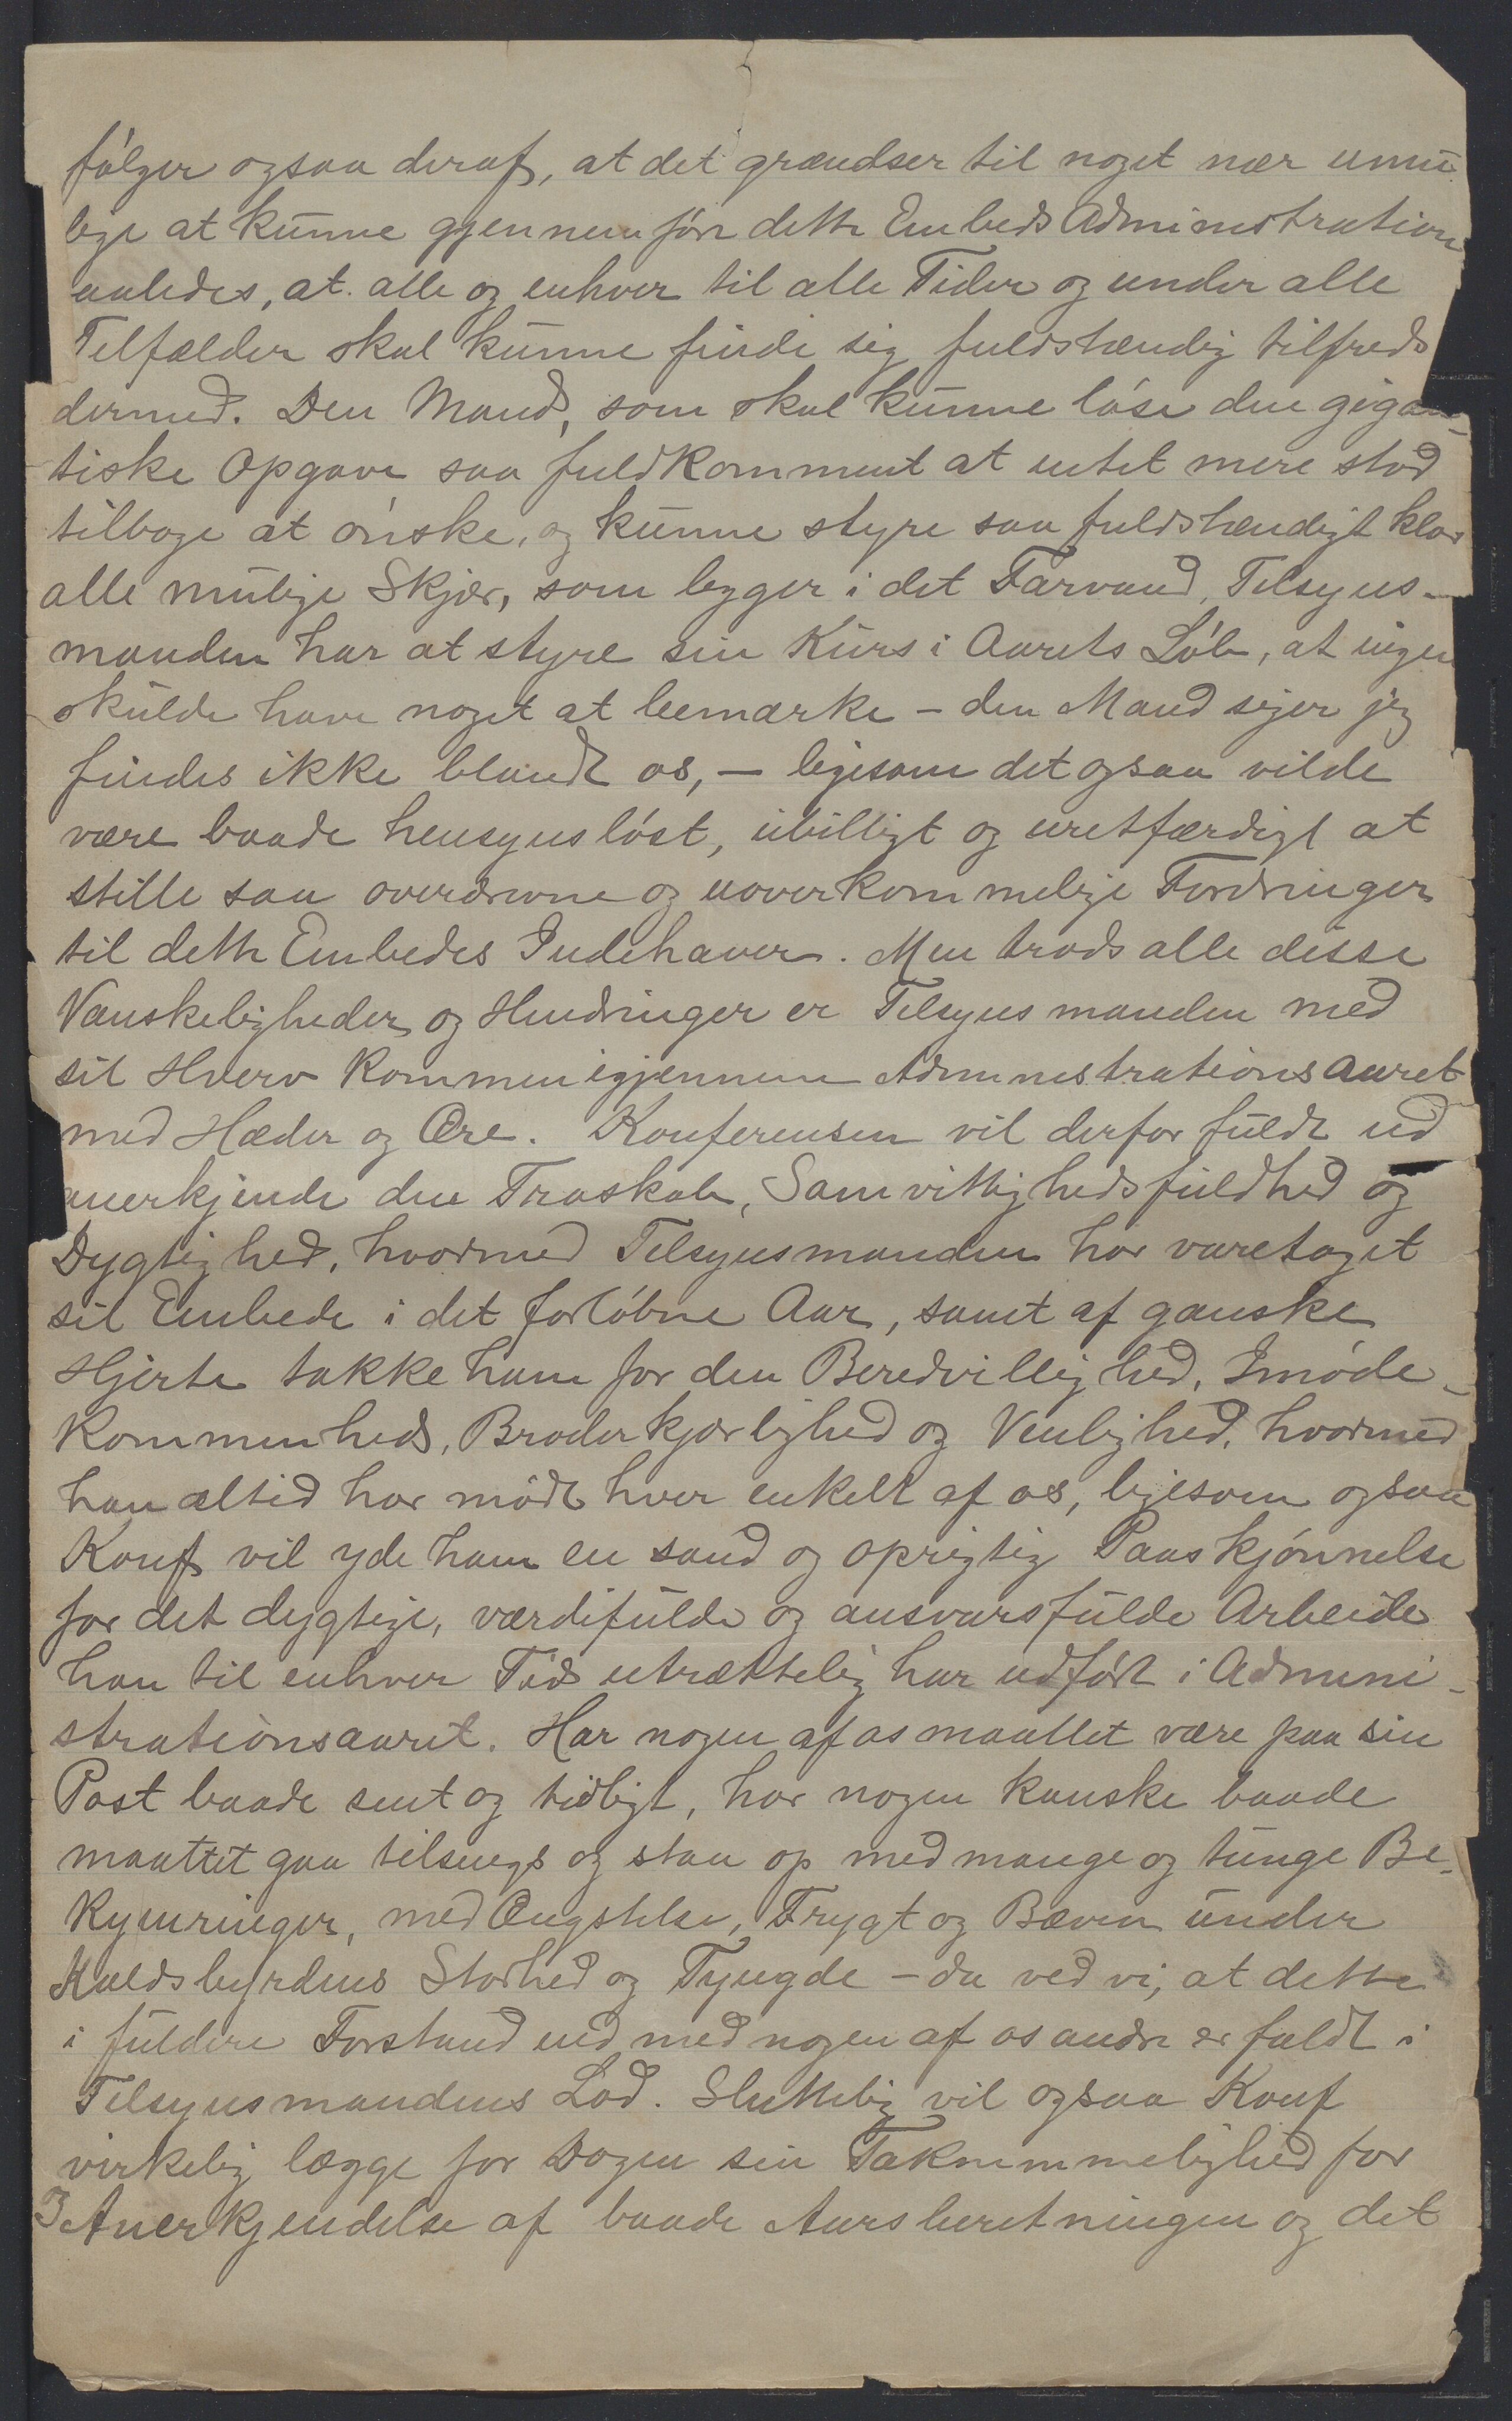 følger ogsaa deraf, at det grændser til noget nær umu-
lige at kunne gjennemføre dette Embeds Administration
aaledes, at alle og enhver til alle Tider og under alle
Tilfælder skal kunne finde sig fuldstændig tilfreds
dermed. Den Mand, som skal kunne løse den gigan-
tiske Opgave saa fuldkomment at intet mere stod
tilbage at ønske, og kunne styre saa fuldstændigt klar
alle mulige Skjær, som ligger i det Farvand, Tilsyns-
manden har at styre sin Kurs i Aarets Løb, at ingen
skulde have noget at bemærke – den Mand siger jeg
findes ikke blandt os, – ligesom det ogsaa vilde
være baade hensynsløst, ubilligt og uretfærdigt at
stille saa overdrevne og uoverkommelige Fordringer
til dette Embedes Indehaver. Men trods alle disse
Vanskeligheder og Hindringer er Tilsynsmanden med
sit Hverv kommen igjennem Administrationsaaret
med Hæder og Ære. Konferensen vil derfor fuldt ud
anerkjende den Troskab, Samvittighedsfuldhed og
Dygtighed, hvormed Tilsynsmanden har varetaget
sit Embede i det forløbne Aar, samt af ganske
Hjerte takke ham for den Beredvillighed, Imøde-
kommenheds, Broderkjærlighed og Venlighed, hvormed
han altid har mødt hver enkelt af os, ligesom ogsaa
Konf vil yde ham en sand og oprigtig Paaskjønnelse
for det dygtige, værdifulde og ansvarsfulde Arbeide
han til enhver Tid utrættelig har udført i Admini-
strationsaaret. Har nogen af os maattet være paa sin
Post baade sent og tidligt, har nogen kanske baade
maattet gaa tilsengs og staa op med mange og tunge Be-
kymringer, med Ængstelse, Frygt og Bæven under
Kaldsbyrdens Storhed og Tyngde – da ved vi, at dette
i fuldere Forstand end med nogen af os andre er faldt i
Tilsynsmandens Lod. Sluttelig vil ogsaa Konf
virkelig lægge for Dagen sin Taknemmelighed for
og Anerkjendelse af baade Aarsberetningen og det